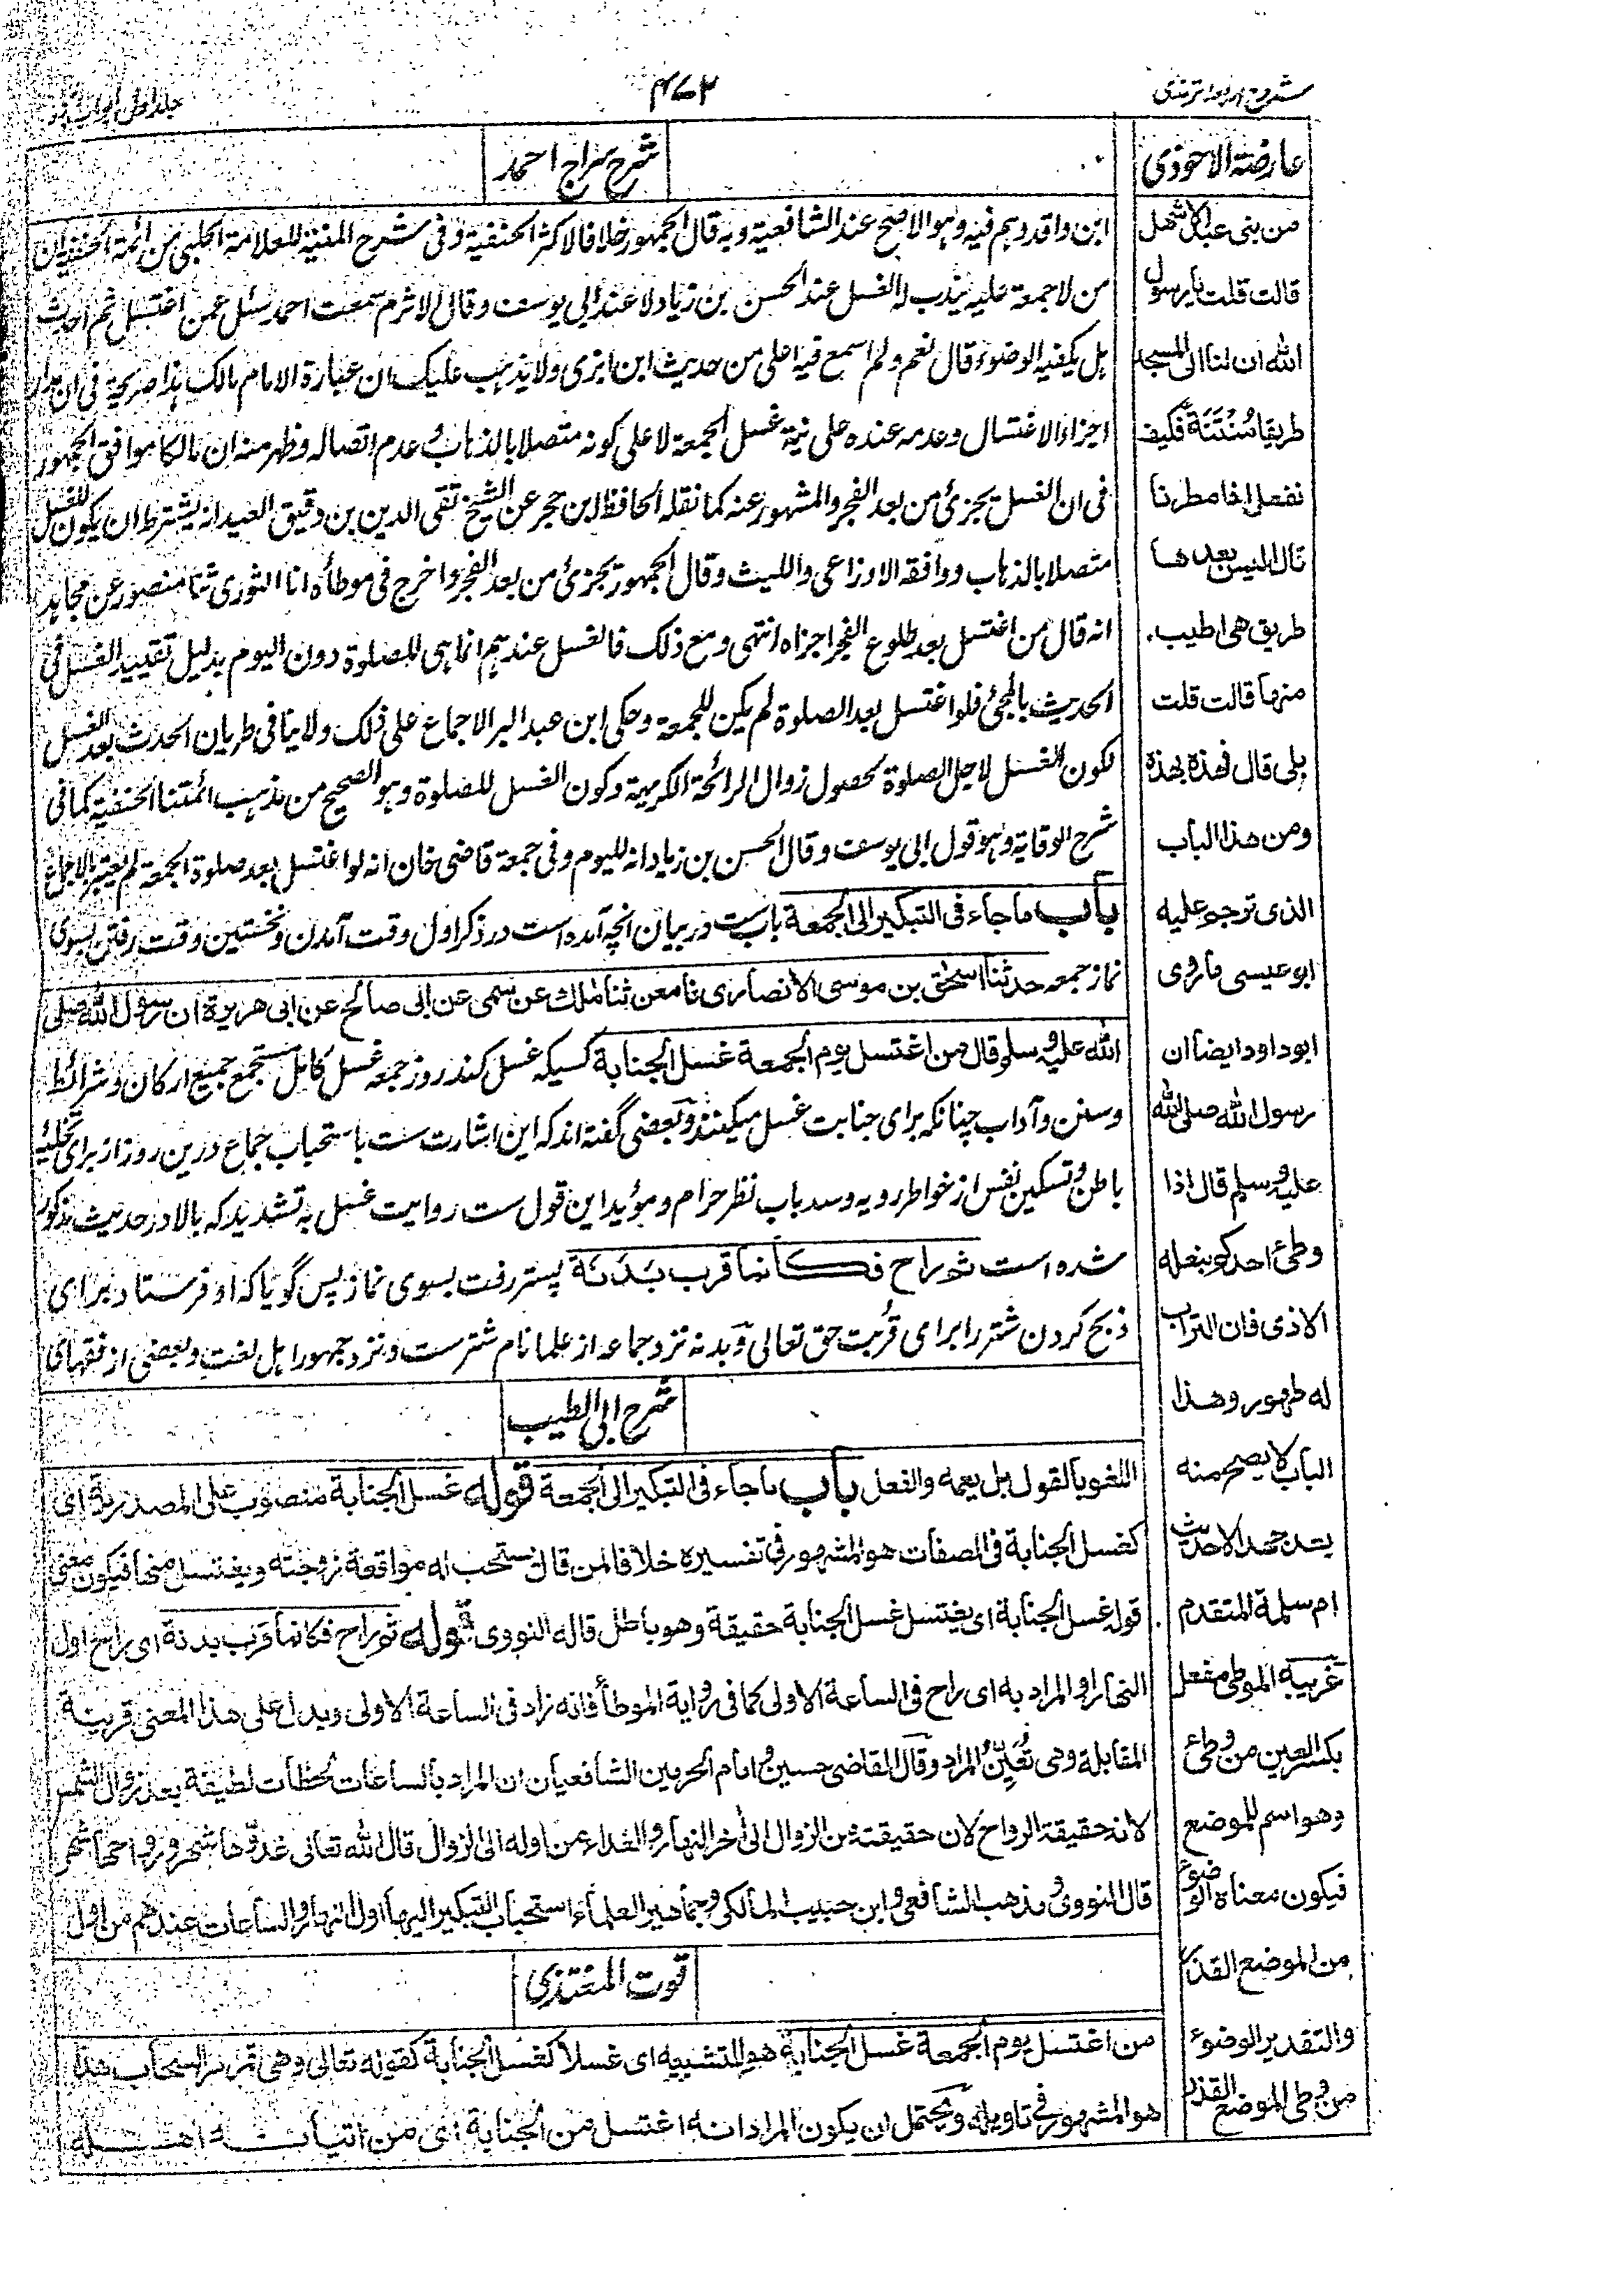 شروح اربعه ترمذی
۴۷۲
جلد اول ابواب
عارضة الاحوذی
من بنی عبد الاشهل
قالت قلت یا رسول
الله ان لنا الی المسجد
طریقا مُنْتِنَة فکیف
نفعل اذا مطرنا
قال الیس بعدها
طریق هی اطیب
منها قالت قلت
بلی قال فهذه بهذه
ومن هذا الباب
الذی ترجم علیه
ابو عیسی ما روی
ابو داود ایضا ان
رسول الله صلی الله
علیه وسلم قال اذا
وطئ احدکم بنعله
الاذی فان التراب
له طهور وهذا
الباب لا یصح منه
بسند جید الا حدیث
ام سلمة المتقدم
غریبه الموطئ مفعل
بکسر العین من وطئ
وهو اسم للموضع
فیکون معناه الوضوء
من الموضع القذر
والتقدیر الوضوء
من وطی الموضع القذر
شرح سراج احمد
ابن واقد وہم فیه وہو الاصح عند الشافعیة وبه قال الجمهور خلافا لاکثر الحنفیة وفی شرح المنیة للعلامة الحلبی من ائمة الحنفیة ان
من لا جمعة علیه یندب له الغسل عند الحسن بن زیاد لا عند ابی یوسف وقال الاثرم سمعت احمد سئل عمن اغتسل ثم احدث
ہل یکفیه الوضوء قال نعم ولم اسمع فیه اعلی من حدیث ابن ابزی ولا یذہب علیک ان عبارة الامام مالک ہذا صریحة فی ان مدار
اجزاء الاغتسال وعدمه عنده علی نیة غسل الجمعة لا علی کونه متصلا بالذہاب وعدم اتصاله وظهر منه ان مالکا موافق الجمهور
فی ان الغسل یجزئ من بعد الفجر والمشهور عنه کما نقله الحافظ ابن حجر عن الشیخ تقی الدین بن دقیق العید انه یشترط ان یکون الغسل
متصلا بالذہاب ووافقه الاوزاعی واللیث وقال الجمهور یجزئ من بعد الفجر واخرج فی موطأه انا الثوری ثنا منصور عن مجاہد
انه قال من اغتسل بعد طلوع الفجر اجزاه انتہی ومع ذلک فالغسل عندہم انما ہی للصلوة دون الیوم بدلیل تقیید الغسل فی
الحدیث بالمجئ فلو اغتسل بعد الصلوة لم یکن للجمعة وحکی ابن عبد البر الاجماع علی ذلک ولا ینافی طریان الحدث بعد الغسل
لکون الغسل لاجل الصلوة لحصول زوال الرائحة الکریہة وکون الغسل للصلوة وہو الصحیح من مذہب ائمتنا الحنفیة کما فی
شرح الوقایة وہو قول ابی یوسف وقال الحسن بن زیاد انه للیوم وفی جمعة قاضی خان انه لو اغتسل بعد صلوة الجمعة لم یعتبر بالاجماع
باب ما جاء فی التبکیر الی الجمعة بابست در بیان انچه آمده است در ذکر اول وقت آمدن ونخستین وقت رفتن بسوی
نماز جمعه حدثنا اسحٰق بن موسی الانصاری نا معن ثنا مٰلک عن سمی عن ابی صالح عن ابی هریرة ان رسول الله صلی
الله علیه وسلم قال من اغتسل یوم الجمعة غسل الجنابة کسیکه غسل کند روز جمعه غسل کامل مستجمع جمیع ارکان وشرائط
وسنن وآداب چنانکه برای جنابت غسل میکنند وبعضی گفته اند که این اشارت ست باستحباب جماع درین روز از برای تخلیه
باطن وتسکین نفس از خواطر ردیه وسد باب نظر حرام ومؤید این قول ست روایت غسل به تشدید که بالا در حدیث مذکور
شده است ثم راح فکانما قرب بَدَنَة پستر رفت بسوی نماز پس گویا که او فرستاد برای
ذبح کردن شتر را برای قُربت حق تعالی وبدنه نزد جماعه از علما نام شترست ونزد جمهور اہل لغت وبعضی از فقهای
شرح ابی الطیب
اللغو بالقول بل یعمه والفعل باب ما جاء فی التبکیر الی الجمعة قوله غسل الجنابة منصوب علی المصدریة ای
کغسل الجنابة فی الصفات هو المشهور فی تفسیره خلافا لمن قال یستحب له مواقعة زوجته ویغتسل منها فیکون معنی
قوله غسل الجنابة ای یغتسل غسل الجنابة حقیقة وهو باطل قاله النووی قوله ثم راح فکانما قرب بدنة ای راح اول
النهار او المراد به ای راح فی الساعة الاولی کما فی روایة الموطأ فانه زاد فی الساعة الاولی ویدل علی هذا المعنی قرینة
المقابلة وهی تُعَیِّنُ المراد وقال القاضی حسین وامام الحرمین الشافعیان ان المراد بالساعات لحظات لطیفة بعد زوال الشمس
لانه حقیقة الرواح لان حقیقته من الزوال الی اٰخر النهار والغداء من اوله الی الزوال قال الله تعالی غدوها شهر ورواحها شهر
قال النووی ومذهب الشافعی وابن حبیب المالکی وجماهیر العلماء استحباب التبکیر الیها اول النهار والساعات عندهم من اول
قوت المغتذی
من اغتسل یوم الجمعة غسل الجنابة هو للتشبیه ای غسلا کغسل الجنابة کقوله تعالی وهی تمر مر السحاب هذا
هو المشهور فی تاویله ویحتمل ان یکون المراد انه اغتسل من الجنابة ای من اتیانه اهله